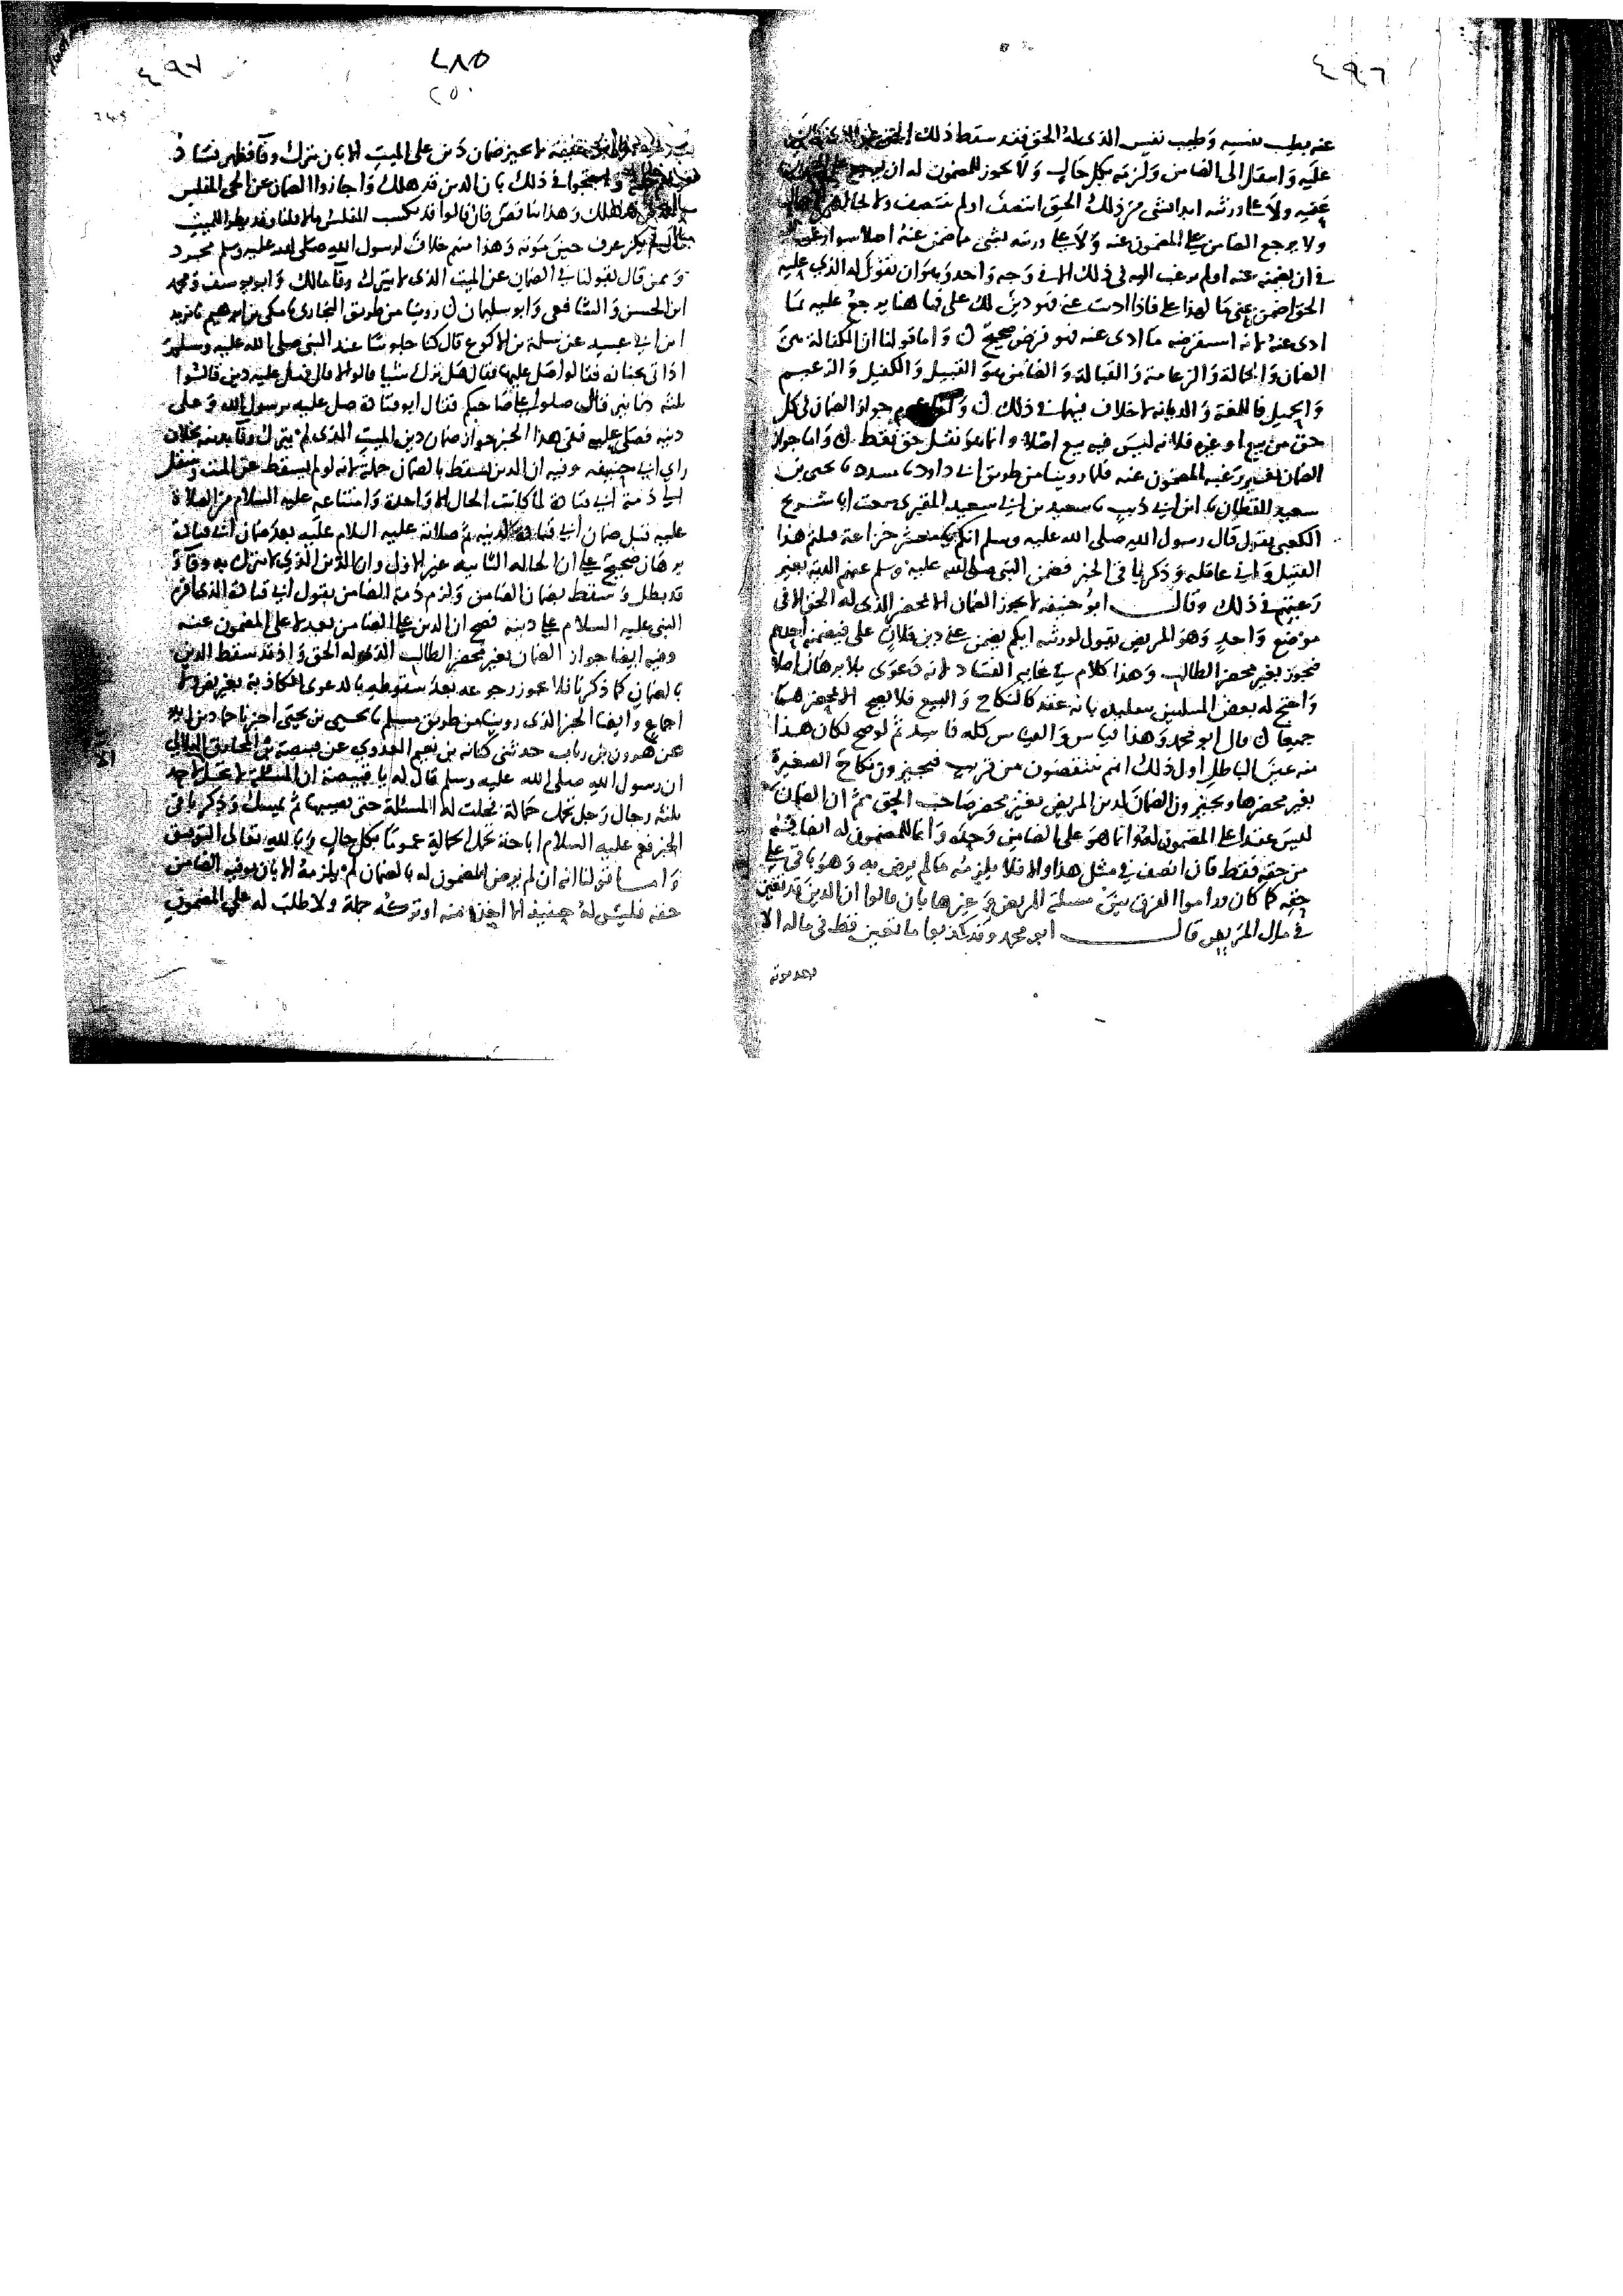 ٤٩٦
عنه بطيب نفسه وطيب نفس الذي له الحق فقد سقط ذلك الحق عن الذي كان
عليه وانتقل الى الضامن ولزمه بكل حال ولا يجوز للمضمون له ان يرجع على المضمون
عنه ولا على ورثته ابدا بشي من ذلك الحق انتصف او لم ينتصف ولا بحال
ولا يرجع الضامن على المضمون عنه ولا على ورثته بشي مما ضمن عنه اصلا سوا رغب
في ان يضمنه عنه او لم يرغب اليه في ذلك الا في وجه واحد وهو ان يقول له الذي عليه
الحق اضمن عني ما لهذا علي فاذا اديت عنه فهو دين لك علي فها هنا يرجع عليه بما
ادى عنه لانه استقرضه ما ادى عنه فهو قرض صحيح ن واما قولنا ان الكفالة هي
الضمان والحمالة والزعامة والقبالة والضامن هو القبيل والكفيل والزعيم
والحميل فاللغة والديانة لا خلاف فيهما في ذلك ن و جواز الضمان في كل
حق من بيع او غيره فلانه ليس فيه بيع اصلا وانما هو نقل حق فقط ن واما جواز
الضمان بغير رغبة المضمون عنه فلما روينا من طريق ابي داود نا مسدد نا يحيى بن
سعيد القطان نا ابن ابي ذيب نا سعيد بن ابي سعيد المقبري سمعت ابا شريح
الكعبي يقول قال رسول الله صلى الله عليه وسلم انكم معشر خزاعة قتلتم هذا
القتيل واني عاقله وذكر باقي الخبر فضمن النبي صلى الله عليه وسلم عنهم الدية بغير
رغبتهم في ذلك وقال ابو حنيفة لا يجوز الضمان الا بمحضر الذي له الحق الا في
موضع واحد وهو المريض يقول لورثته ايكم يضمن عني دين فلان علي فيضمنه احدهم
فيجوز بغير محضر الطالب وهذا كلام في غاية الفساد لانه دعوى بلا برهان اصلا
واحتج له بعض المبتلين بتقليده بانه عقد كالنكاح والبيع فلا يصح الا بمحضرهما
جميعا ن قال ابو محمد وهذا قياس والقياس كله فاسد ثم لو صح لكان هذا
منه عين الباطل اول ذلك انهم ينتقضون من قريب فيجيزون نكاح الصغيرة
بغير محضرها ويجيزون الضمان لدين المريض بغير محضر صاحب الحق ثم ان الضمان
ليس عقدا على المضمون له وانما هو على الضامن وحده وانما للمضمون له انصافهم
من حقه فقط فان انصف في مثل هذا والا فلا يلزمه ما لم يرض به وهو باق على
حقه كما كان وراموا الفرق بين مسئلة المريض وغيرها بان قالوا ان الدين قد تعين
في مال المريض قال ابو محمد وقد كذبوا ما تعين قط في ماله الا
بعد موته
٤٩٧
٤٨٥
٢٥٠
حنيفة لا يجيز ضمان دين على الميت الا بان يترك وفا فظهر فساد
واحتجوا في ذلك بان الدين قد هلك واجازوا الضمان عن الحي المفلس
هلك وهذا تناقض فان قالوا قد يكسب المفلس مالا قلنا وقد يطرا للميت
مال لم يكن عرف حين موته وهذا منهم خلاف لرسول الله صلى الله عليه وسلم مجرد
وممن قال بقولنا في الضمان عن الميت الذي لا يترك وفا مالك وابو يوسف ومحمد
ابن الحسن والشافعي وابو سليمان ن روينا من طريق البخاري نا مكي بن ابراهيم نا يزيد
ابن ابي عبيد عن سلمة بن الاكوع قال كنا جلوسا عند النبي صلى الله عليه وسلم
اذ اتي بجنازة فقالوا صل عليها فقال هل ترك شيا قالوا لا قال فهل عليه دين قالوا
ثلثة دنانير قال صلوا على صاحبكم فقال ابو قتادة صل عليه يرسول الله وعلي
دينه فصلى عليه ففي هذا الخبر جواز ضمان دين الميت الذي لم يترك وفا بدينه بخلاف
راي ابي حنيفة وفيه ان الدين يسقط بالضمان جملة لانه لو لم يسقط عن الميت وينتقل
الى ذمة ابي قتادة لما كانت الحال الا واحدة وامتناعه عليه السلام من الصلاة
عليه قبل ضمان ابي قتادة لدينه ثم صلاته عليه السلام عليه بعد ضمان ابي قتادة
برهان صحيح على ان الحالة الثانية غير الاولى وان الدين الذي لا يترك به وفا
قد بطل وسقط بضمان الضامن ولزم ذمة الضامن بقول ابي قتادة الذي اقره
النبي عليه السلام علي دينه فصح ان الدين على الضامن بعد لا على المضمون عنه
وفيه ايضا جواز الضمان بغير محضر الطالب الذي له الحق واذ قد سقط الدين
بالضمان كما ذكرنا فلا يجوز رجوعه بعد سقوطه بالدعوى الكاذبة بغير نص ولا
اجماع وايضا الخبر الذي روينا من طريق مسلم نا يحيى بن يحيى اخبرنا حماد بن زيد
عن هرون بن رياب حدثني كنانة بن نعيم العدوي عن قبيصة بن المخارق الهلالي
ان رسول الله صلى الله عليه وسلم قال له يا قبيصة ان المسئلة لا تحل الا لاحد
ثلثة رجال رجل تحمل حمالة فحلت له المسئلة حتى يصيبها ثم يمسك وذكر باقي
الخبر فعم عليه السلام اباحة تحمل الحمالة عموما بكل حال وبالله تعالى التوفيق
واما قولنا انه ان لم يرض المضمون له بالضمان لم يلزمه الا بان يوفيه الضامن
حقه فليس له حينئذ الا اخذه منه او تركه جملة ولا طلب له على المضمون